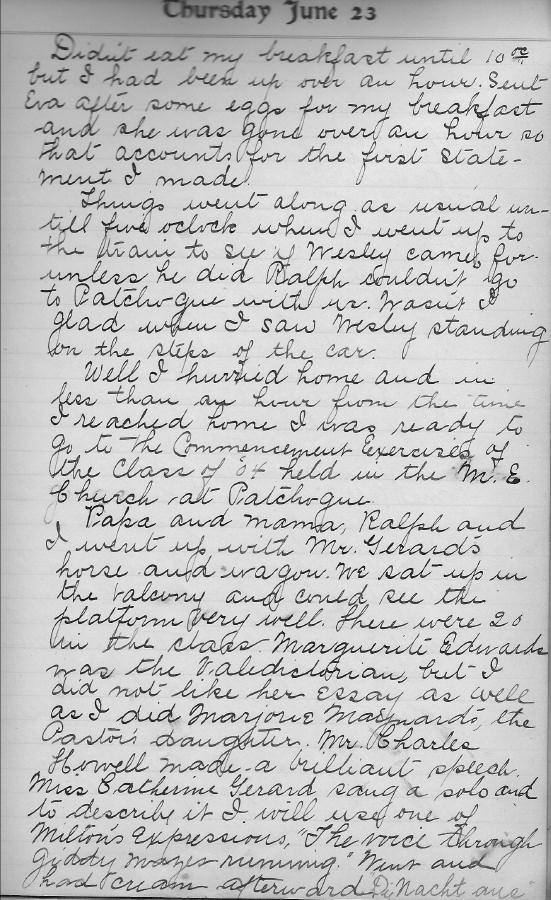 Thursday June 23
Didn't eat my breakfast until 10 oc
but I had been up over an hour. Sent
Eva after some eggs for my breakfast
and she was gone over an hour so
that accounts for the first state-
ment I made.
Things went along as usual un-
till five oclock when I went up to
the train to see if Wesley came, for
unless he did Ralph couldn't go
to Patchogue with us. Wasn't I
glad when I saw Wesley standing
on the steps of the car.
Well I hurried home and in
less than an hour from the time
I reached home I was ready to
go to the Commencement Exercises of
the Class of '04 held in the M. E.
Church at Patchogue.
Papa and mama, Ralph and
I went up with Mr. Gerard's
horse and wagon. We sat up in
the balcony and could see the
platform very well. There were 20
in the class. Marguerite Edwards
was the Valedictorian, but I
did not like her Essay as well
as I did Marjorie Maynard's, the
Pastor's daughter. Mr. Charles
Howell made a brilliant speech.
Miss Catherine Gerard sang a solo and
to describe it I will use one of
Milton's Expressions, "The voice through
giddy mazes running." Went and
had cream afterward Die Nacht aus"